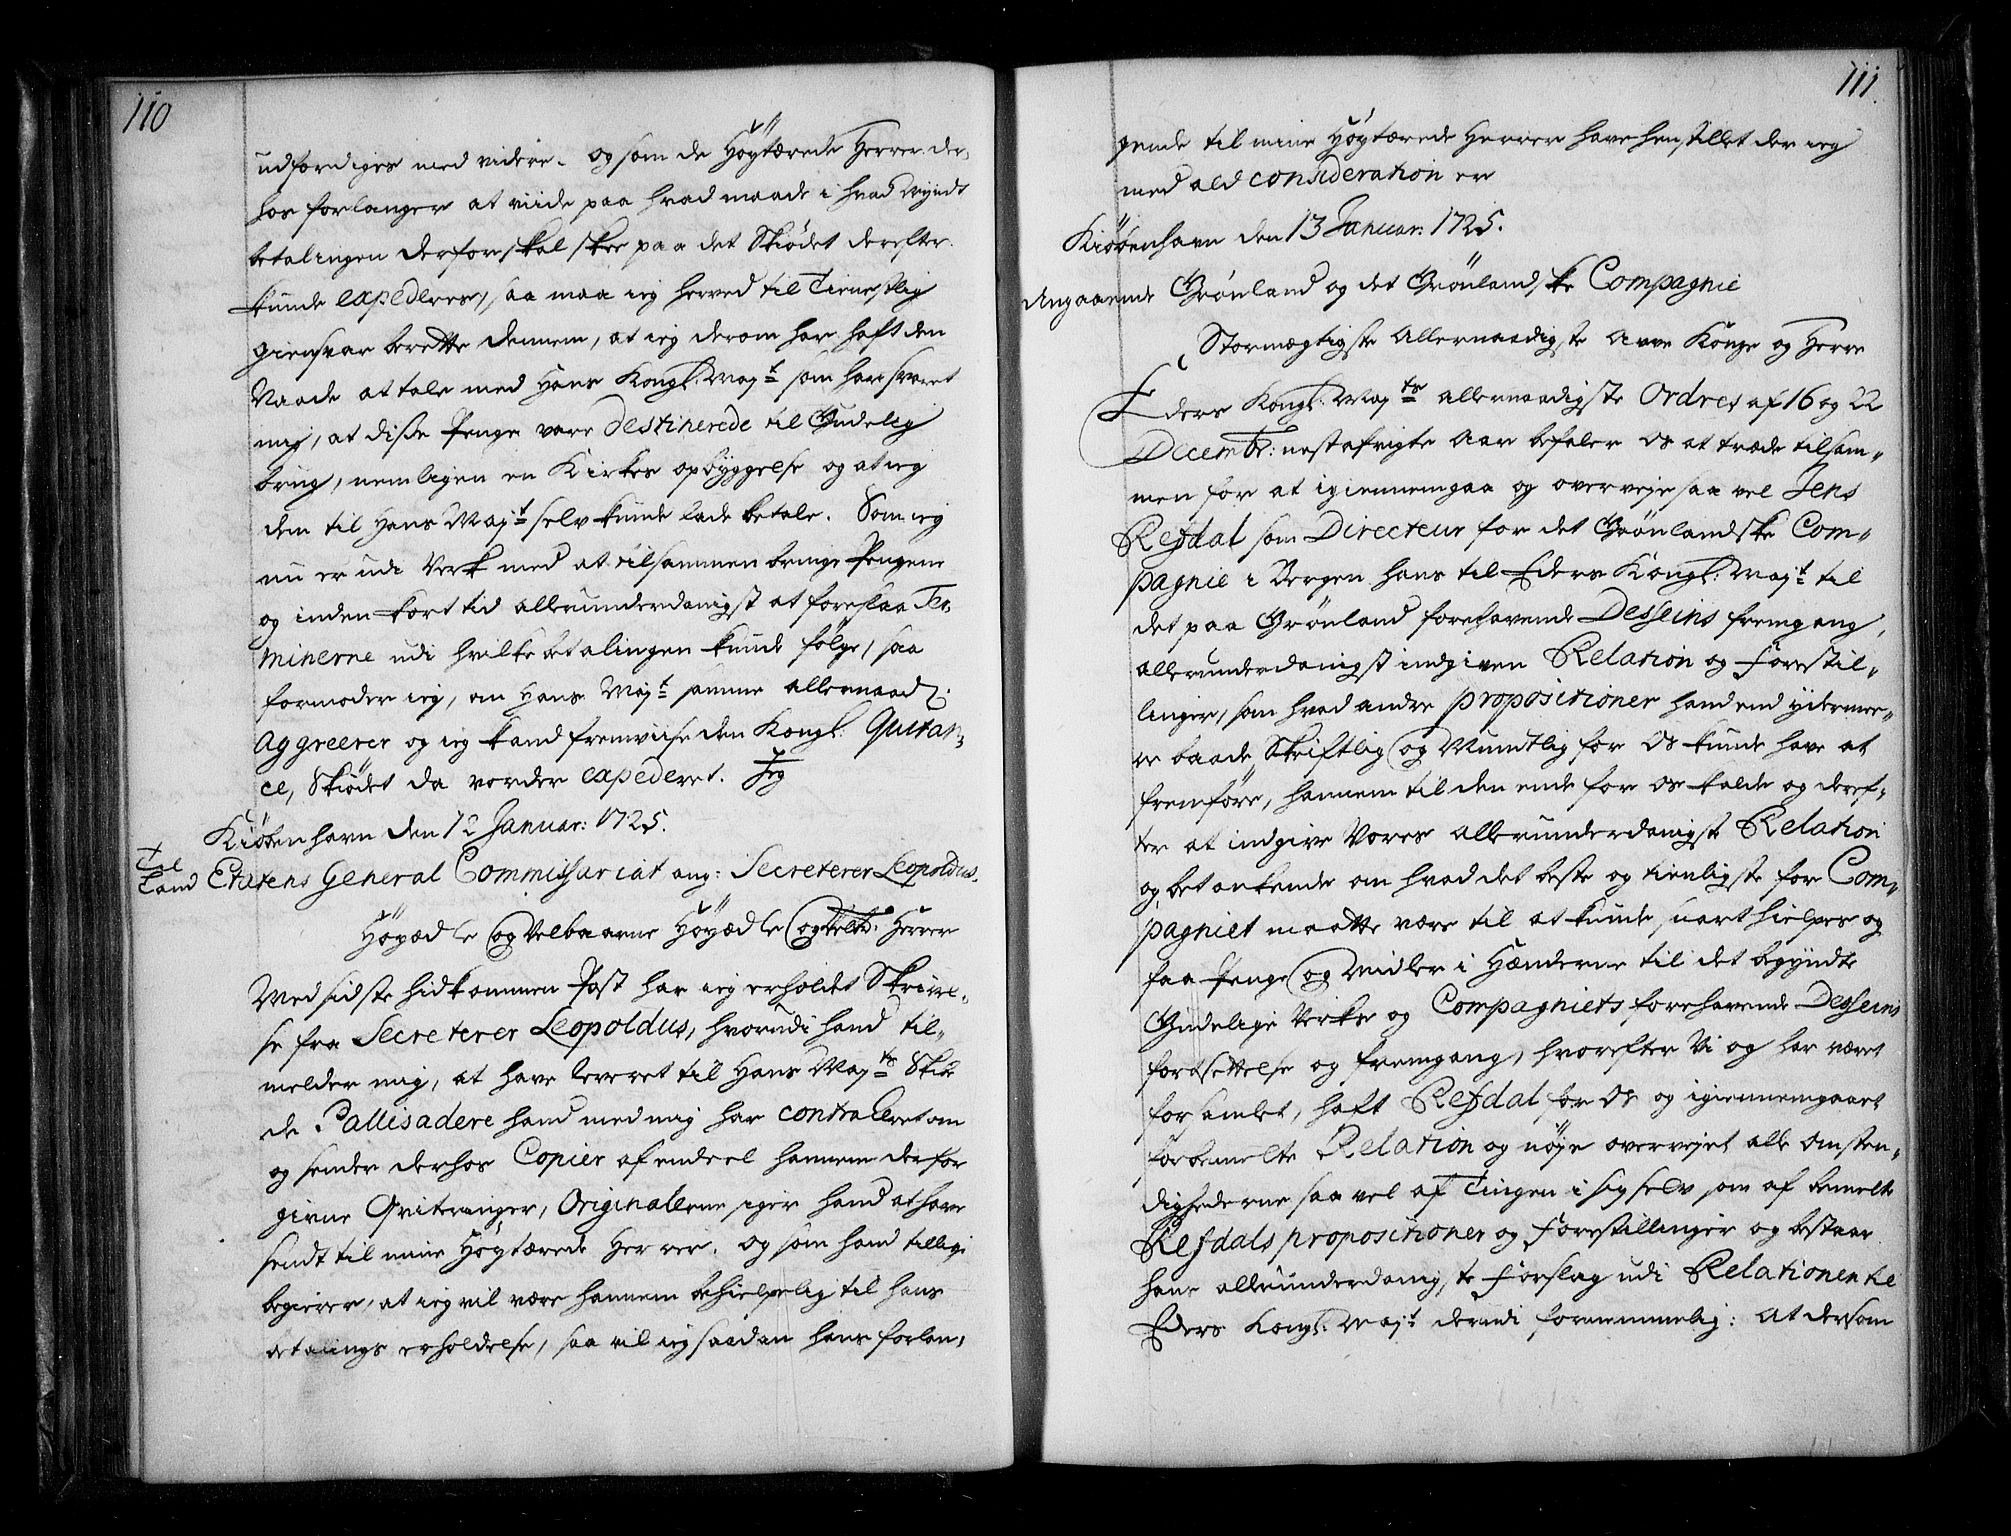 110
udferdiges med videre. og som de Höytærede Herrer der,
hos forlanger at viide paa hvad maade i hvad Myndt
betalingen derfore skal skee paa det Skiödet derefter
kunde expederes, saa maa ieg herved til Tienstlig
giensvar berette dennem, at ieg derom har haft den
Naade at tale med Hans Kongl: Majt som har svaret
mig, at disse Penge vare destinerede til Gudelig
brug, nemligen en Kirkes opbyggelse og at ieg
dem til Hans Majt selv kunde lade betale. Som ieg
nu er udi Verk med at tilsammen bringe Pengene
og inden kort tid allerunderdanigst at foreslaa Ter,
minerne udi hvilke betalingen kunde fölge, saa
formoder ieg, om Hans Majt samme allernaad:
aggreerer og ieg kand fremviise den Kongl: Quitan,,
ce, Skiödet da vorder expederet. Jeg
Kiöbenhavn den 12 Januar: 1725.
Til
Land Etatens General Commissariat ang: Secreterer Leopoldus.
Höyædle og Velbaarne Höyædle og Velb: Herrer
Med sidste hidkommen Post har ieg erholdet Skrivel,,
se fra Secreterer Leopoldus, hvorudi hand til,,
melder mig, at have leveret til Hans Majts Skibe
de Pallisadere hand med mig har contraheret om
og sender derhos Copier af endeel hannem derfor
givne Qviteringer, Originalerne siger hand at have
sendt til mine Höytærede Herrer. og som hand tillige
begierer, at ieg vil være hannem behielpelig til hans
betalings erholdelse, saa vil ieg saadan hans forlan,
111.
gende til mine Höytærede Herrer have henstillet der ieg
med ald consideration er
Kiöbenhavn den 13 Januar: 1725.
Angaaende Grönland og det Grönlandske Compagnie
Stormægtigste Allernaadigste Arve Konge og Herre
Eders Kongl: Majts allernaadigste Ordres af 16 og 22
Decembr: nestafvigte Aar befaler os at træde tilsam,,
men for at igiennemgaa og overveje saa vel Jens
Refdal som Directeur for det Grönlandske Com,,
pagnie i Bergen hans til Eders Kongl: Majt til
det paa Grönland forehavende Desseins fremgang,
allerunderdanigst indgiven Relation og Forestil,,
linger, som hvad andre propositioner hand end ydermee,,
re baade Skriftlig og Mundtlig for Os kunde have at
fremföre, hannem til den ende for os kalde og deref,,
ter at indgive Vores allerunderdanigst Relation
og betænkende om hvad det beste og tienligste for Com,,
pagniet maatte være til at kunde snart hielpes og
faa Penge og Midler i Hænderne til det begyndte
Gudelige Verks og Compagniets forehavende Desseins
fortsettelse og fremgang, hvorefter Vi og har været
forsamlet, haft Refdal for Os og igiennemgaaet
forbemelte Relation og nöje overvejet alle omsten,,
dighederne saa vel af Tingen i sig selv som af bemelte
Refdals propositioner og Forestillinger og bestaar
hans allerunderdanigste Forslag udi Relationen til
Eders Kongl: Majt derudi fornemmelig: At dersom